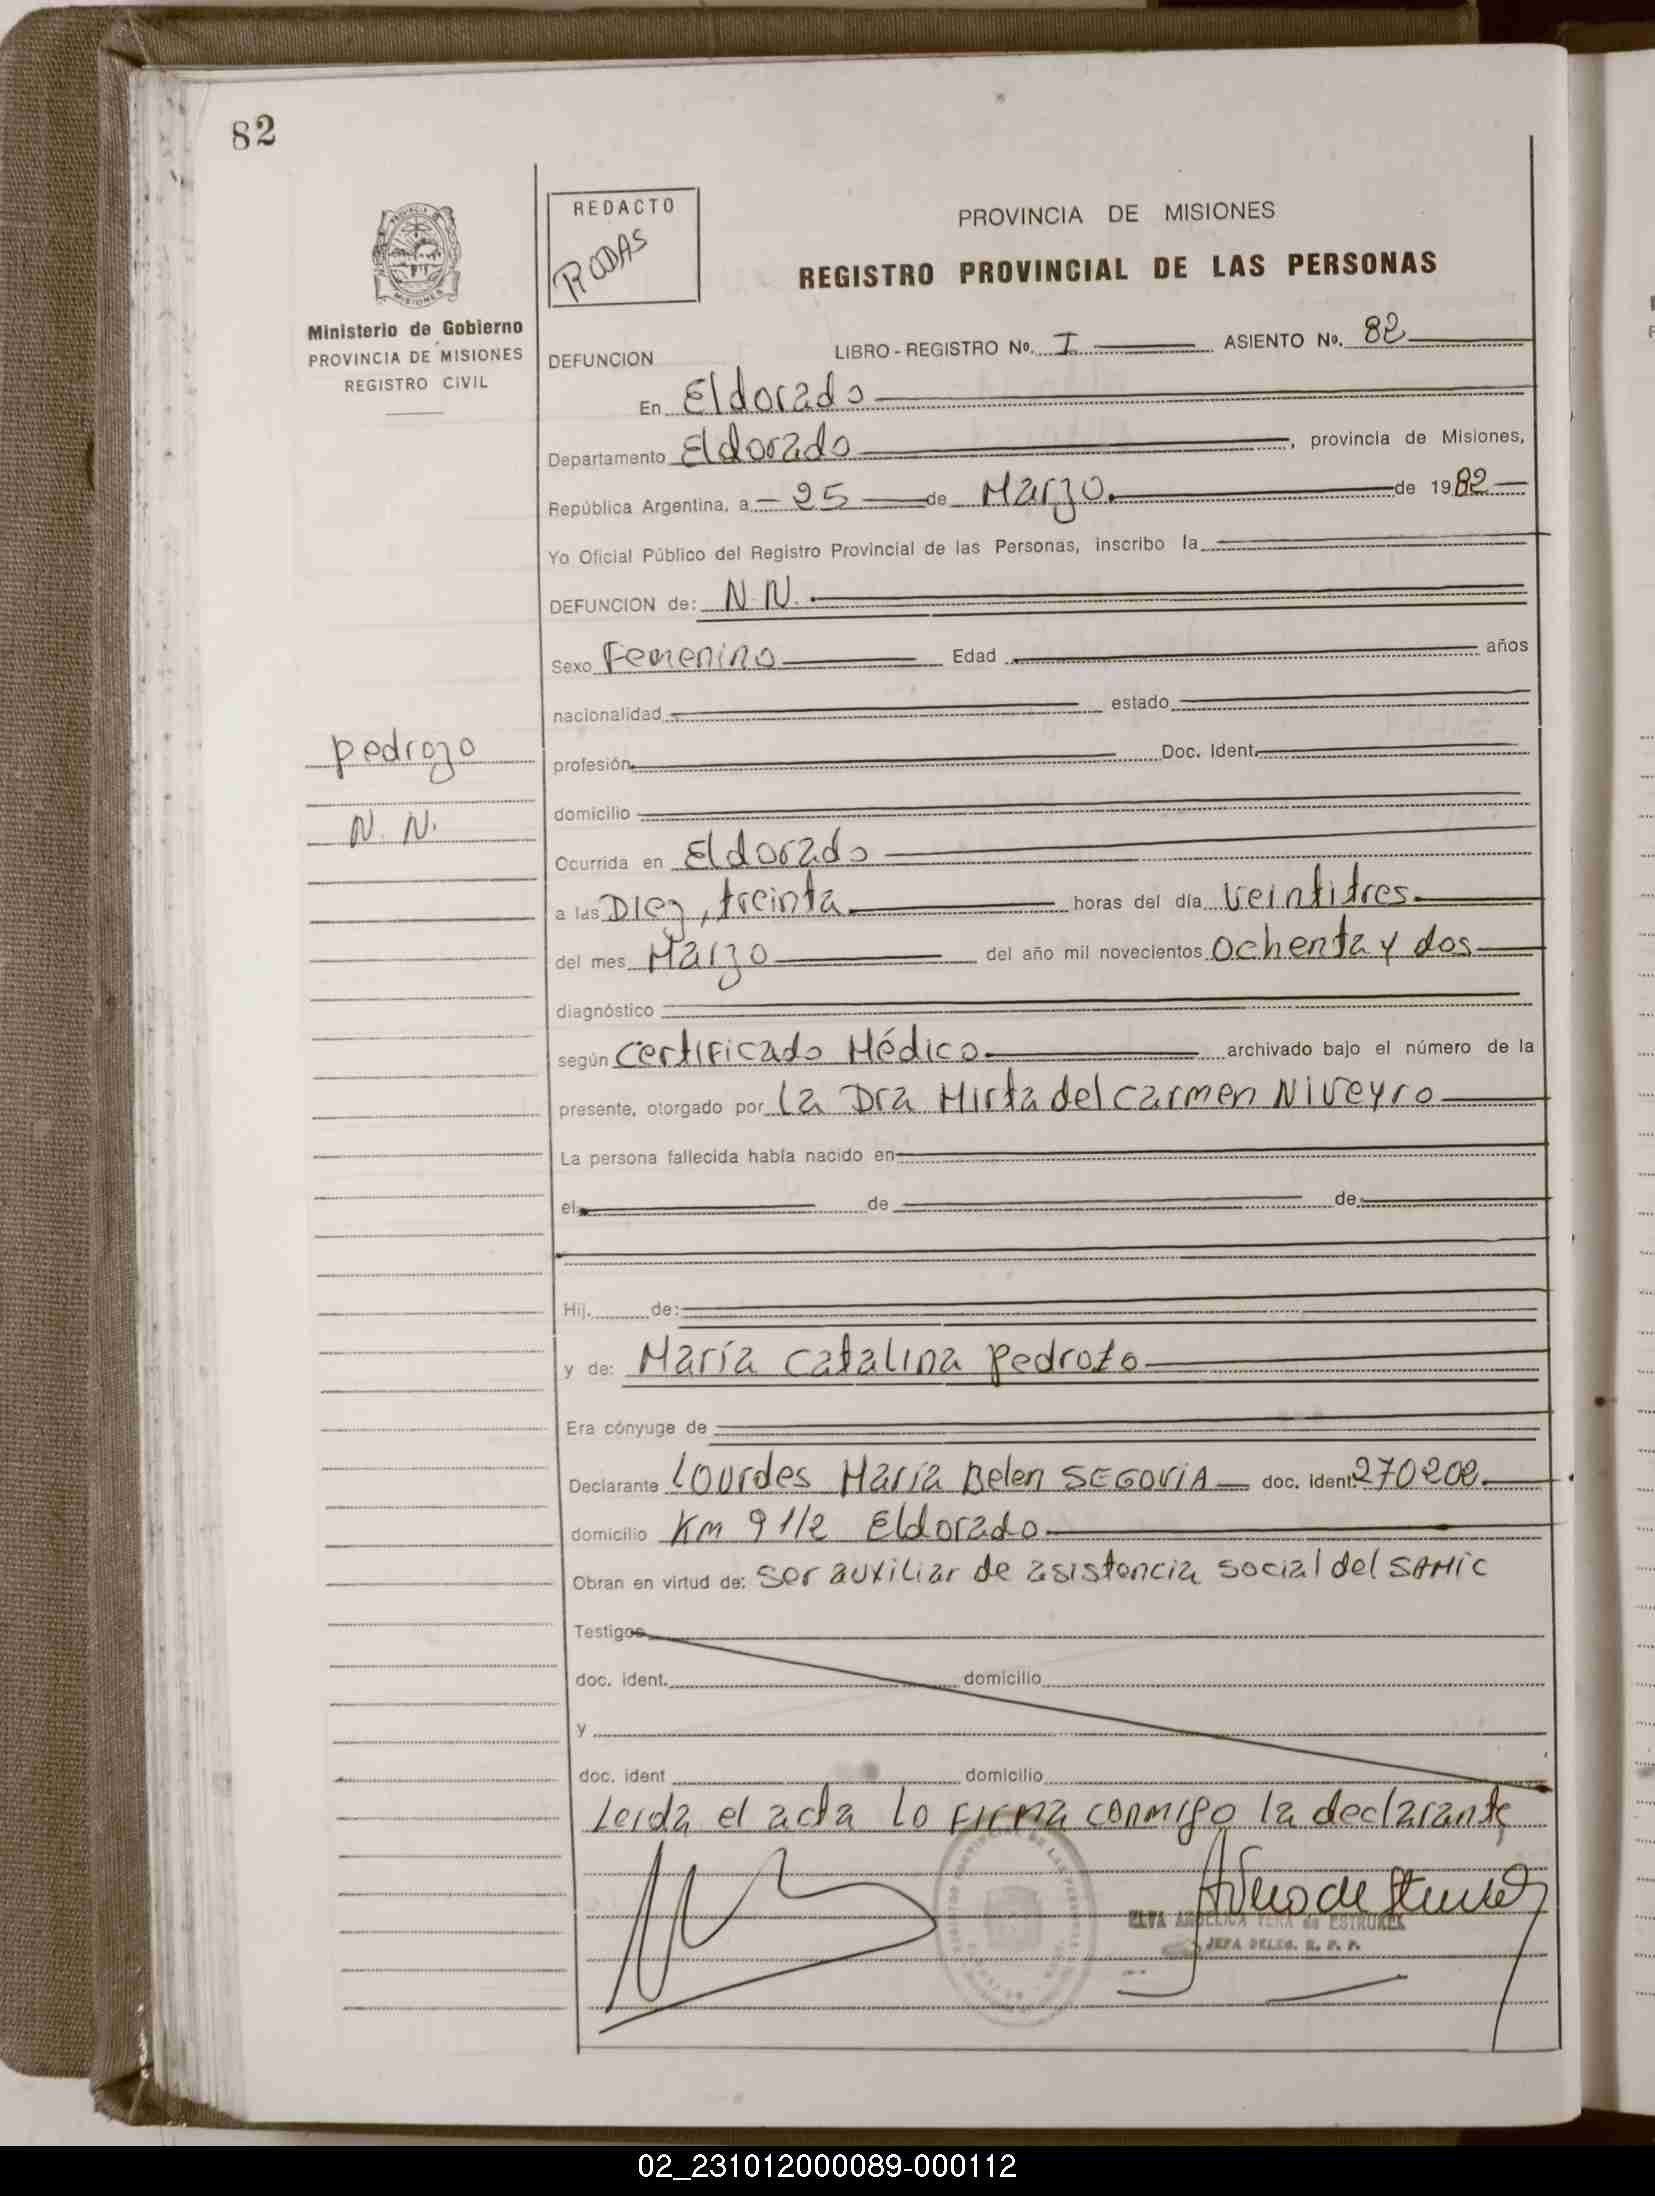 82
REDACTO
RODAS
PROVINCIA DE MISIONES
REGISTRO PROVINCIAL DE LAS PERSONAS
Ministerio de Gobierno
PROVINCIA DE MISIONES
REGISTRO CIVIL
DEFUNCION LIBRO - REGISTRO Nº. I ASIENTO Nº. 82
En Eldorado
Departamento Eldorado, provincia de Misiones,
República Argentina, a 25 de Marzo de 1982
Yo Oficial Público del Registro Provincial de las Personas, inscribo la
DEFUNCION de: N.N.
Sexo Femenino Edad años
nacionalidad estado
pedrozo
profesión Doc. Ident.
N. N.
domicilio
Ocurrida en Eldorado
a las Diez, treinta horas del día veintitres
del mes Marzo del año mil novecientos ochenta y dos
diagnóstico
según Certificado Médico archivado bajo el número de la
presente, otorgado por la Dra Mirta del Carmen Niveyro
La persona fallecida había nacido en
el de de
Hij. de:
y de: María Catalina Pedrozo
Era cónyuge de
Declarante Lourdes María Belen SEGOVIA doc. ident. 270202
domicilio Km 9 1/2 Eldorado
Obran en virtud de: ser auxiliar de asistencia social del SAMIC
Testigos
doc. ident. domicilio
y
doc. ident domicilio
Leida el acta lo firma conmigo la declarante
ELVA ANGELICA VERA de ESTRUKEL
JEFA DELEG. R. P. P.
02_231012000089-000112